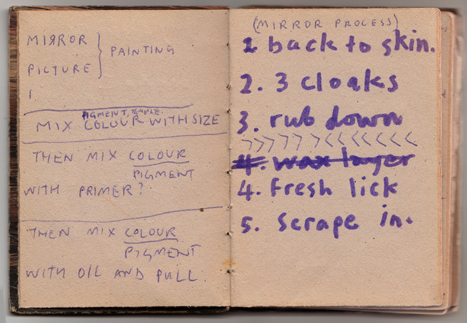 MIRROR
PICTURE } PAINTING
MIX COLOUR WITH SIZE
THEN MIX COLOUR
PIGMENT
WITH PRIMER?
THEN MIX COLOUR
PIGMENT
WITH OIL AND PULL.
(MIRROR PROCESS)
1. back to skin.
2. 3 cloaks
3. rub down
>>>>>><<<<<<
4. wax layer
4. Fresh lick
5. Scrape in.